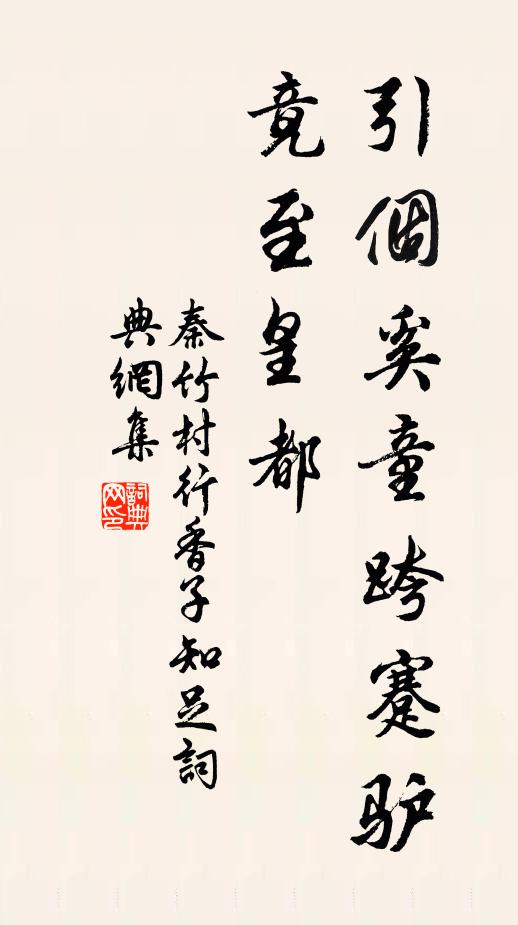 引個奚童跨蹇驴
竟至皇都
秦竹村行香子知足詞
典網集
詞典网印